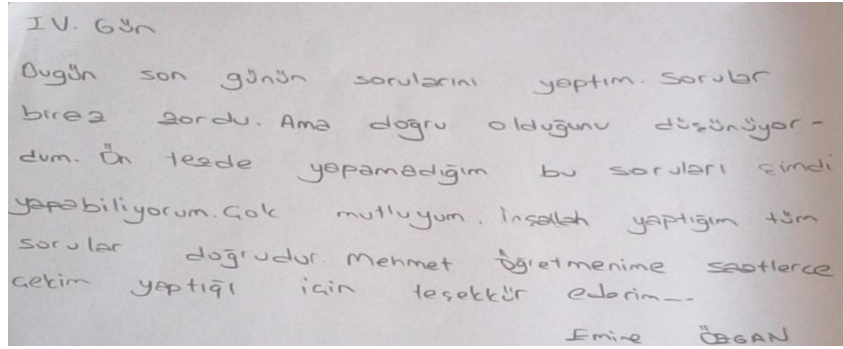 IV. Gün
Bugün son günün sorularını yaptım. Sorular
biraz zordu. Ama doğru olduğunu düşünüyor-
dum. Ön tezde yapamadığım bu soruları şimdi
yapabiliyorum. Çok mutluyum. İnşallah yaptığım tüm
sorular doğrudur. Mehmet öğretmenime saatlerce
çekim yaptığı için teşekkür ederim...
Emine ÖZGAN